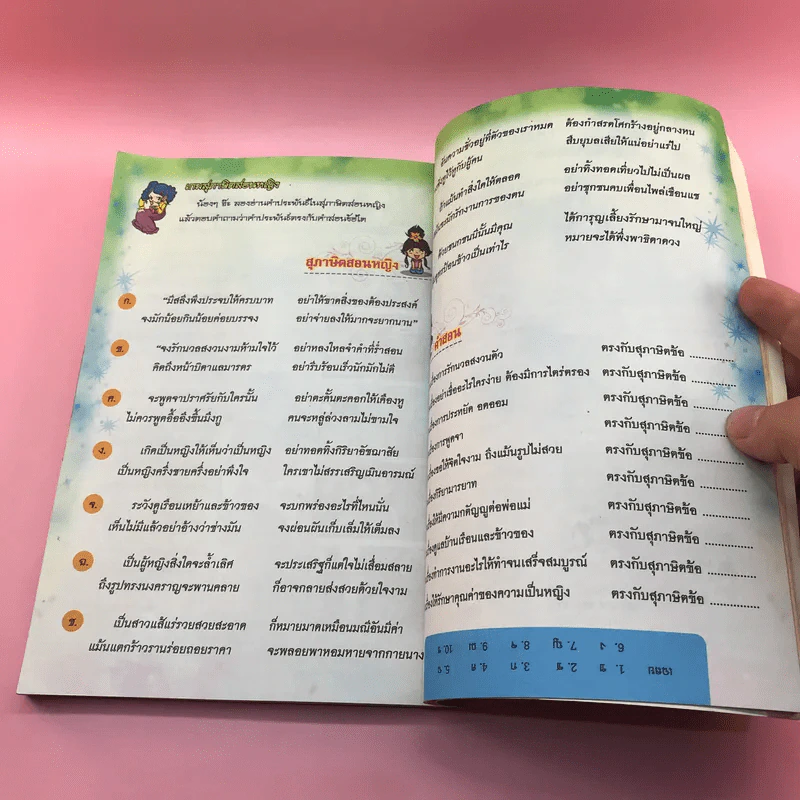 เกมสุภาษิตสอนหญิง
น้องๆ จ๊ะ ลองอ่านคำประพันธ์ในสุภาษิตสอนหญิง
แล้วตอบคำถามว่าคำประพันธ์ตรงกับคำสอนข้อใด
สุภาษิตสอนหญิง
ก. “มีสลึงพึงประจบให้ครบบาท อย่าให้ขาดสิ่งของต้องประสงค์
จงมักน้อยกินน้อยค่อยบรรจง อย่าจ่ายลงให้มากจะยากนาน”
ข. “จงรักนวลสงวนงามห้ามใจไว้ อย่าหลงใหลจำคำที่ร่ำสอน
คิดถึงหน้าบิดาแลมารดร อย่ารีบร้อนเร็วนักมักไม่ดี
ค. จะพูดจาปราศรัยกับใครนั้น อย่าตะคั้นตะคอกให้เคืองหู
ไม่ควรพูดอื้ออึงขึ้นมึงกู คนจะหลู่ล่วงลามไม่ขามใจ
ง. เกิดเป็นหญิงให้เห็นว่าเป็นหญิง อย่าทอดทิ้งกิริยาอัชฌาสัย
เป็นหญิงครึ่งชายครึ่งอย่าพึงใจ ใครเขาไม่สรรเสริญเมินอารมณ์
จ. ระวังดูเรือนเหย้าและข้าวของ จะบกพร่องอะไรที่ไหนนั่น
เห็นไม่มีแล้วอย่าอ้างว่าช่างมัน จงผ่อนผันเก็บเล็มให้เต็มลง
ฉ. เป็นผู้หญิงสิ่งใดจะล้ำเลิศ จะประเสริฐก็แต่ใจไม่เสื่อมสลาย
ถึงรูปทรงนงคราญจะพานคลาย ก็อาจกลายส่งสวยด้วยใจงาม
ช. เป็นสาวแส้แร่รวยสวยสะอาด ก็หมายมาดเหมือนมณีอันมีค่า
แม้นแตกร้าวรานร่อยถอยราคา จะพลอยพาหอมหายจากกายนาง
อันความชั่วอยู่ที่ตัวของเราหมด ต้องกำสรดโศกร้างอยู่กลางหน
สืบยุบลเสียให้แน่อย่าแร่ไป
ทำสิ่งใดให้ตลอด อย่าทิ้งทอดเที่ยวไปไม่เป็นผล
รักงานการของตน อย่าซุกซนคบเพื่อนไพล่เชือนแช
ด้วยชนกชนนีนั้นมีคุณ ได้การุญเลี้ยงรักษามาจนใหญ่
ป้อนข้าวเป็นเท่าไร หมายจะได้พึ่งพาธิดาดวง
คำสอน
รักนวลสงวนตัว ตรงกับสุภาษิตข้อ ............
อย่าเชื่ออะไรใครง่าย ต้องมีการไตร่ตรอง ตรงกับสุภาษิตข้อ ............
การประหยัด อดออม ตรงกับสุภาษิตข้อ ............
การพูดจา ตรงกับสุภาษิตข้อ ............
ขอให้จิตใจงาม ถึงแม้นรูปไม่สวย ตรงกับสุภาษิตข้อ ............
กิริยามารยาท ตรงกับสุภาษิตข้อ ............
ให้มีความกตัญญูต่อพ่อแม่ ตรงกับสุภาษิตข้อ ............
ดูแลบ้านเรือนและข้าวของ ตรงกับสุภาษิตข้อ ............
ทำการงานอะไรให้ทำจนเสร็จสมบูรณ์ ตรงกับสุภาษิตข้อ ............
ให้รักษาคุณค่าของความเป็นหญิง ตรงกับสุภาษิตข้อ ............
เฉลย